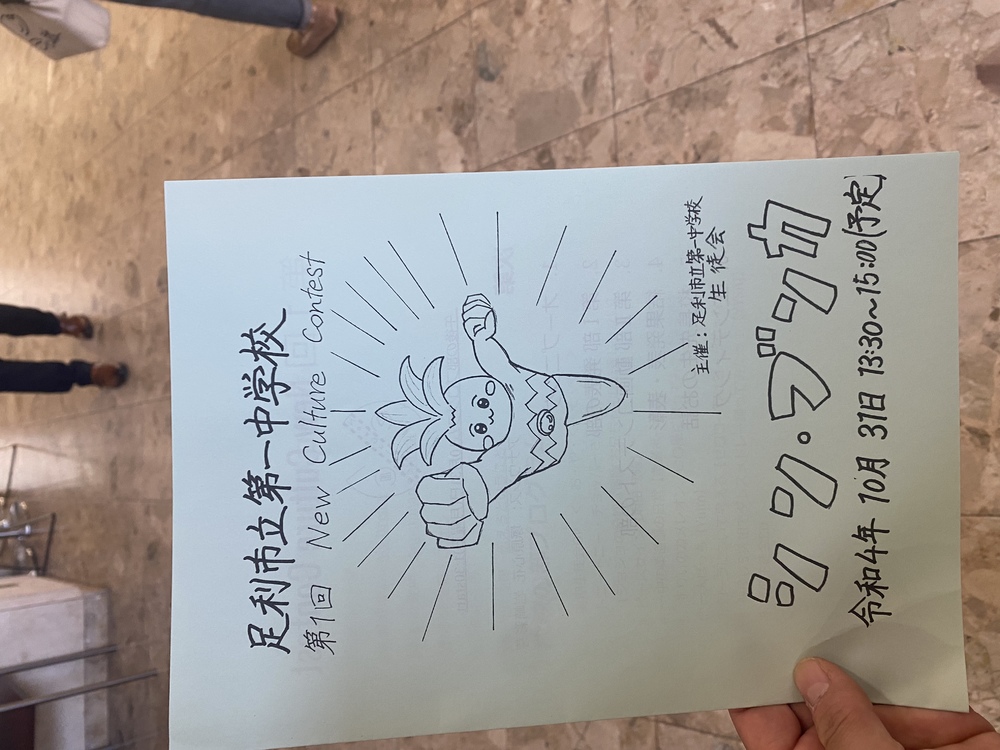 足利市立第一中学校
第1回 New Culture Contest
主催：足利市立第一中学校
生徒会
シン・ブンカ
令和4年 10月 31日 13:30〜15:00(予定)